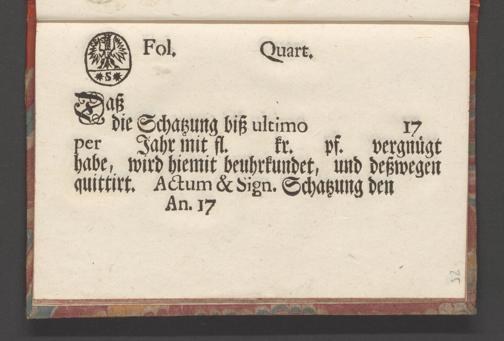 *S*
Fol. Quart.
Daß
die Schatzung biß ultimo 17
per Jahr mit fl. kr. pf. vergnügt
habe, wird hiemit beuhrkundet, und deßwegen
quittirt. Actum & Sign. Schatzung den
An. 17
52